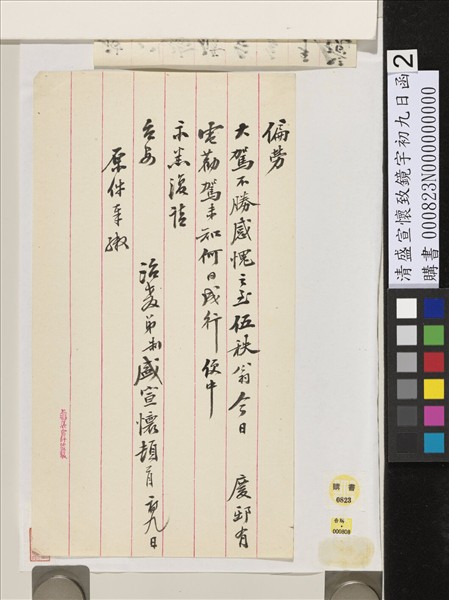 偏勞
大駕不勝感愧之至伍秩翁今日 慶邸有
電勸駕未知何日成行便中
示悉復請
台安
治愚弟制盛宣懷頓首 初九日
原件奉繳
清盛宣懷致鏡宇初九日函
購書 000823N000000000
2
購書
0823
000808